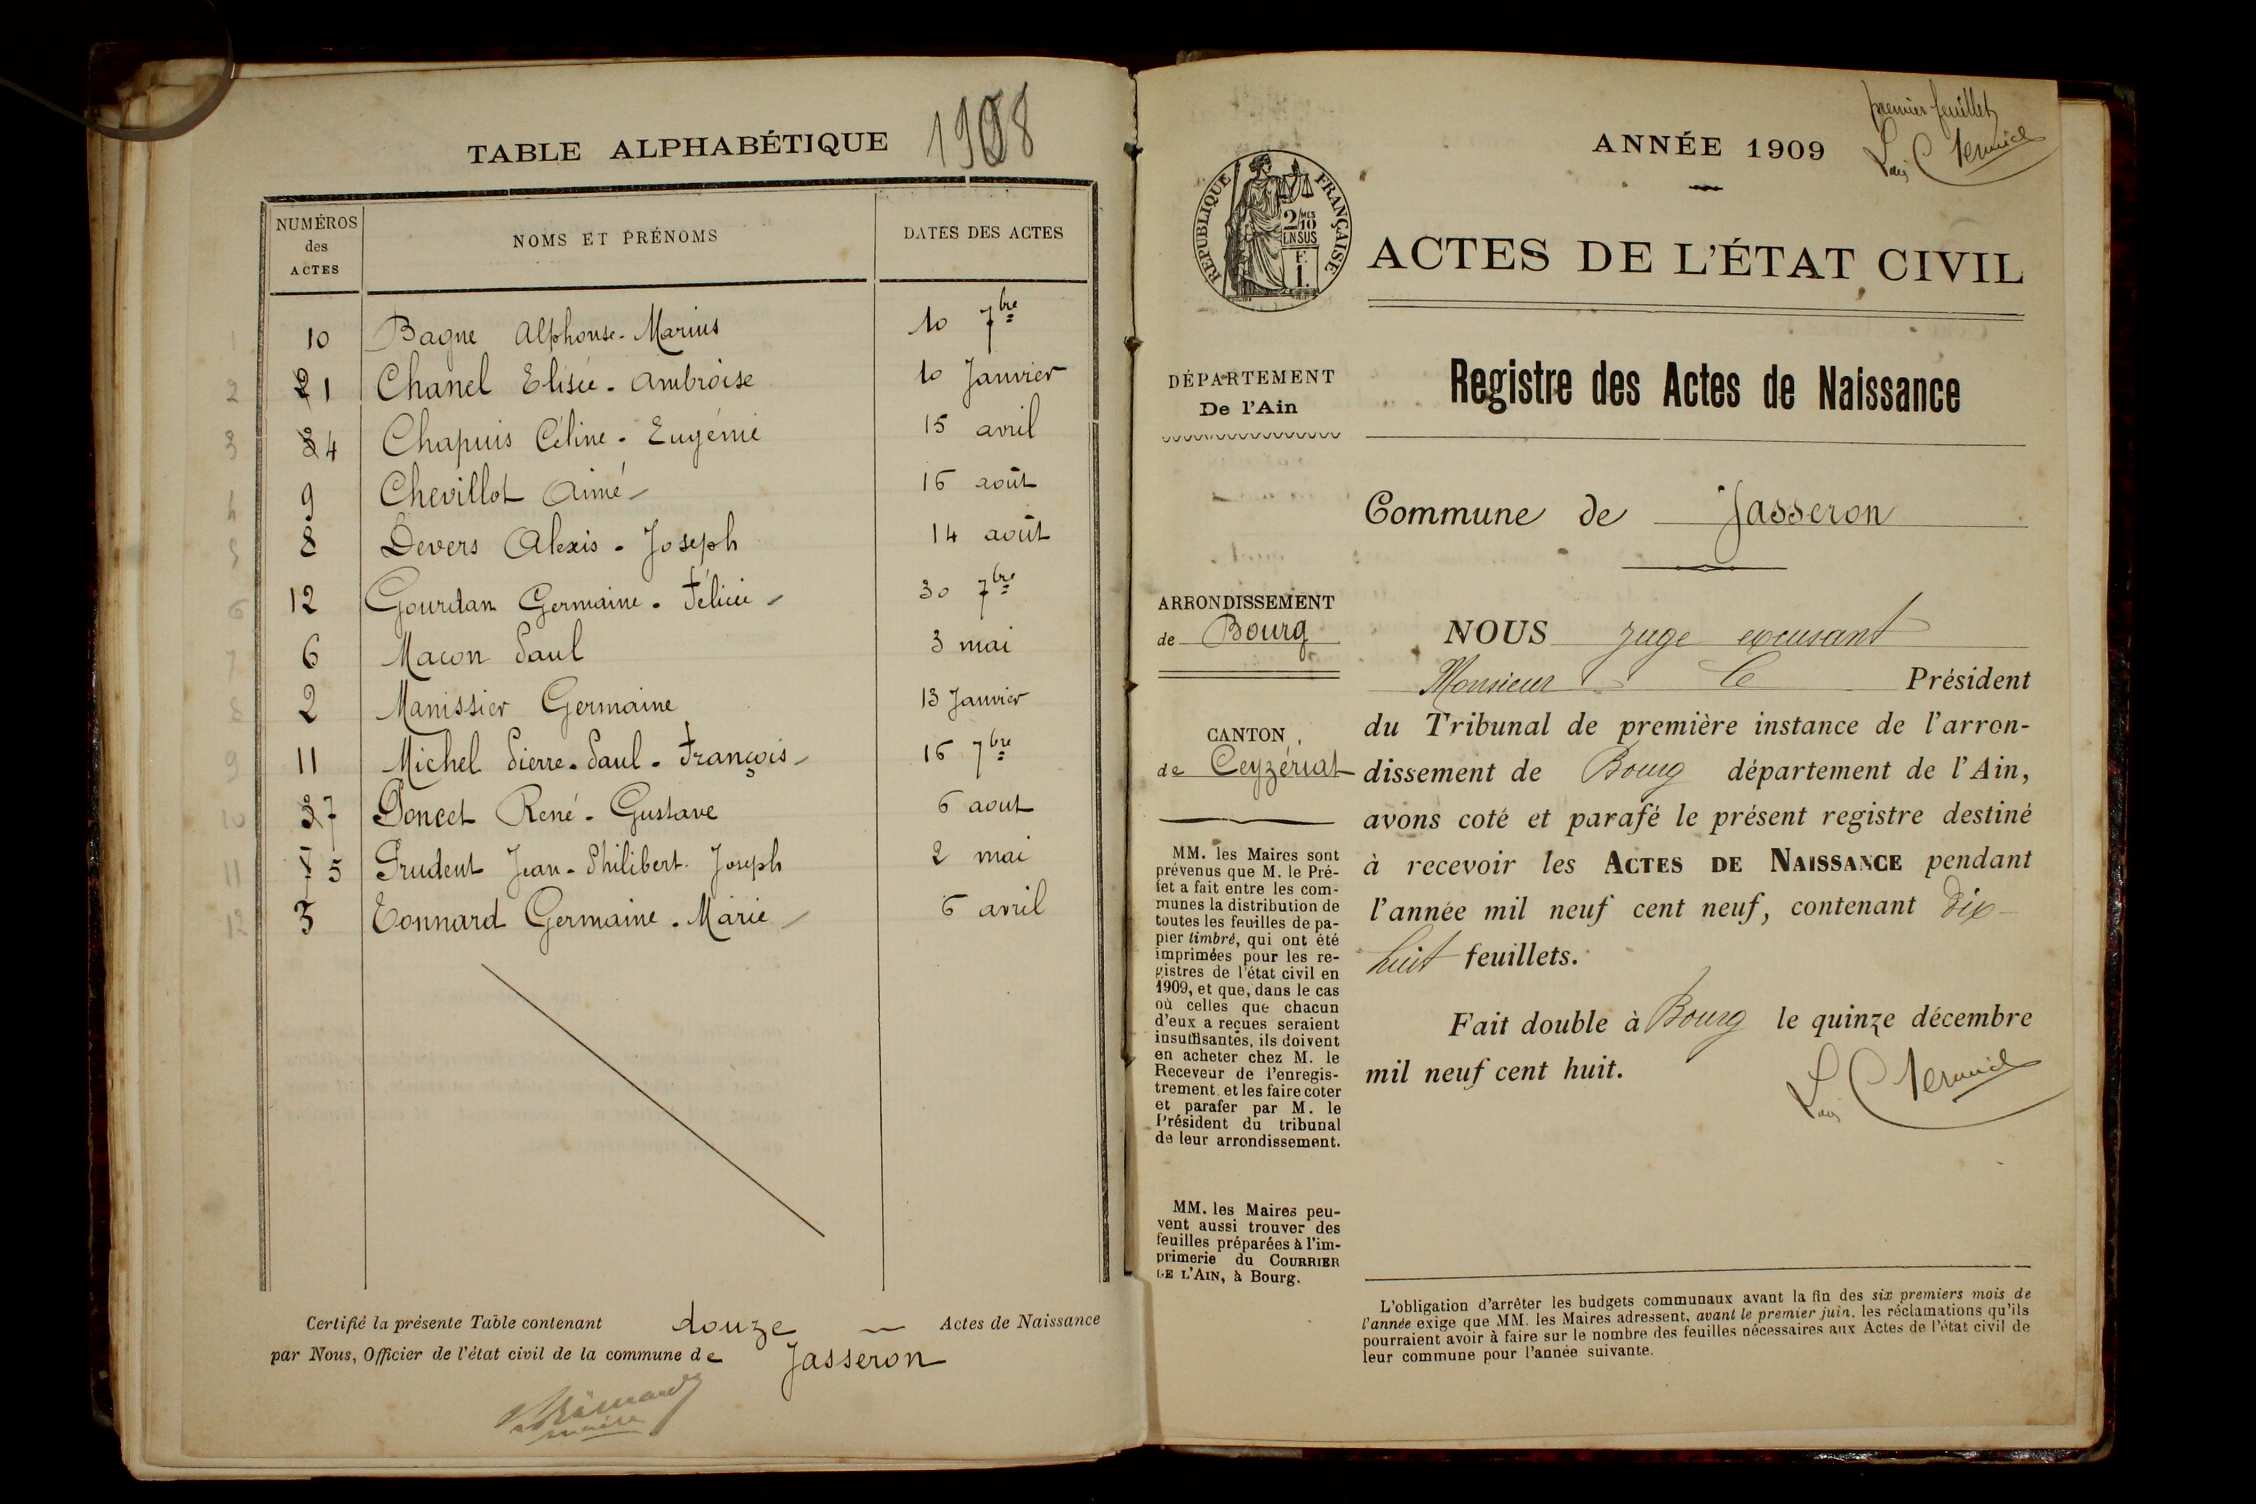 TABLE ALPHABÉTIQUE 1908
NUMÉROS des ACTES NOMS ET PRÉNOMS DATES DES ACTES
1 10 Bagne Alphonse-Marius 10 7bre
2 1 Chanel Elisée-Ambroise 10 Janvier
3 4 Chapuis Céline-Eugénie 15 avril
4 9 Chevillot Aimé 16 août
5 8 Devers Alexis-Joseph 14 août
6 12 Gourdan Germaine-Félicie 30 7bre
7 6 Macon Paul 3 mai
8 2 Manissier Germaine 13 Janvier
9 11 Michel Pierre-Paul-François 16 7bre
10 7 Poncet René-Gustave 6 aout
11 5 Prudent Jean-Philibert-Joseph 2 mai
12 3 Tonnard Germaine-Marie 6 avril
Certifié la présente Table contenant douze Actes de Naissance
par Nous, Officier de l'état civil de la commune de Jasseron
maire
premier feuillet
ANNÉE 1909
RÉPUBLIQUE FRANÇAISE
2/10 MES
EN SUS
F.
1.
ACTES DE L'ÉTAT CIVIL
DÉPARTEMENT
De l'Ain
Registre des Actes de Naissance
Commune de Jasseron
ARRONDISSEMENT
de Bourg
CANTON
de Ceyzériat
MM. les Maires sont
prévenus que M. le Pré-
fet a fait entre les com-
munes la distribution de
toutes les feuilles de pa-
pier timbré, qui ont été
imprimées pour les re-
gistres de l'état civil en
1909, et que, dans le cas
où celles que chacun
d'eux a reçues seraient
insuffisantes, ils doivent
en acheter chez M. le
Receveur de l'enregis-
trement et les faire coter
et parafer par M. le
Président du tribunal
de leur arrondissement.
MM. les Maires peu-
vent aussi trouver des
feuilles préparées à l'im-
primerie du COURRIER
DE L'AIN, à Bourg.
NOUS juge excusant
Monsieur le Président
du Tribunal de première instance de l'arron-
dissement de Bourg département de l'Ain,
avons coté et parafé le présent registre destiné
à recevoir les ACTES DE NAISSANCE pendant
l'année mil neuf cent neuf, contenant dix
huit feuillets.
Fait double à Bourg le quinze décembre
mil neuf cent huit.
L'obligation d'arrêter les budgets communaux avant la fin des six premiers mois de
l'année exige que MM. les Maires adressent, avant le premier juin, les réclamations qu'ils
pourraient avoir à faire sur le nombre des feuilles nécessaires aux Actes de l'état civil de
leur commune pour l'année suivante.